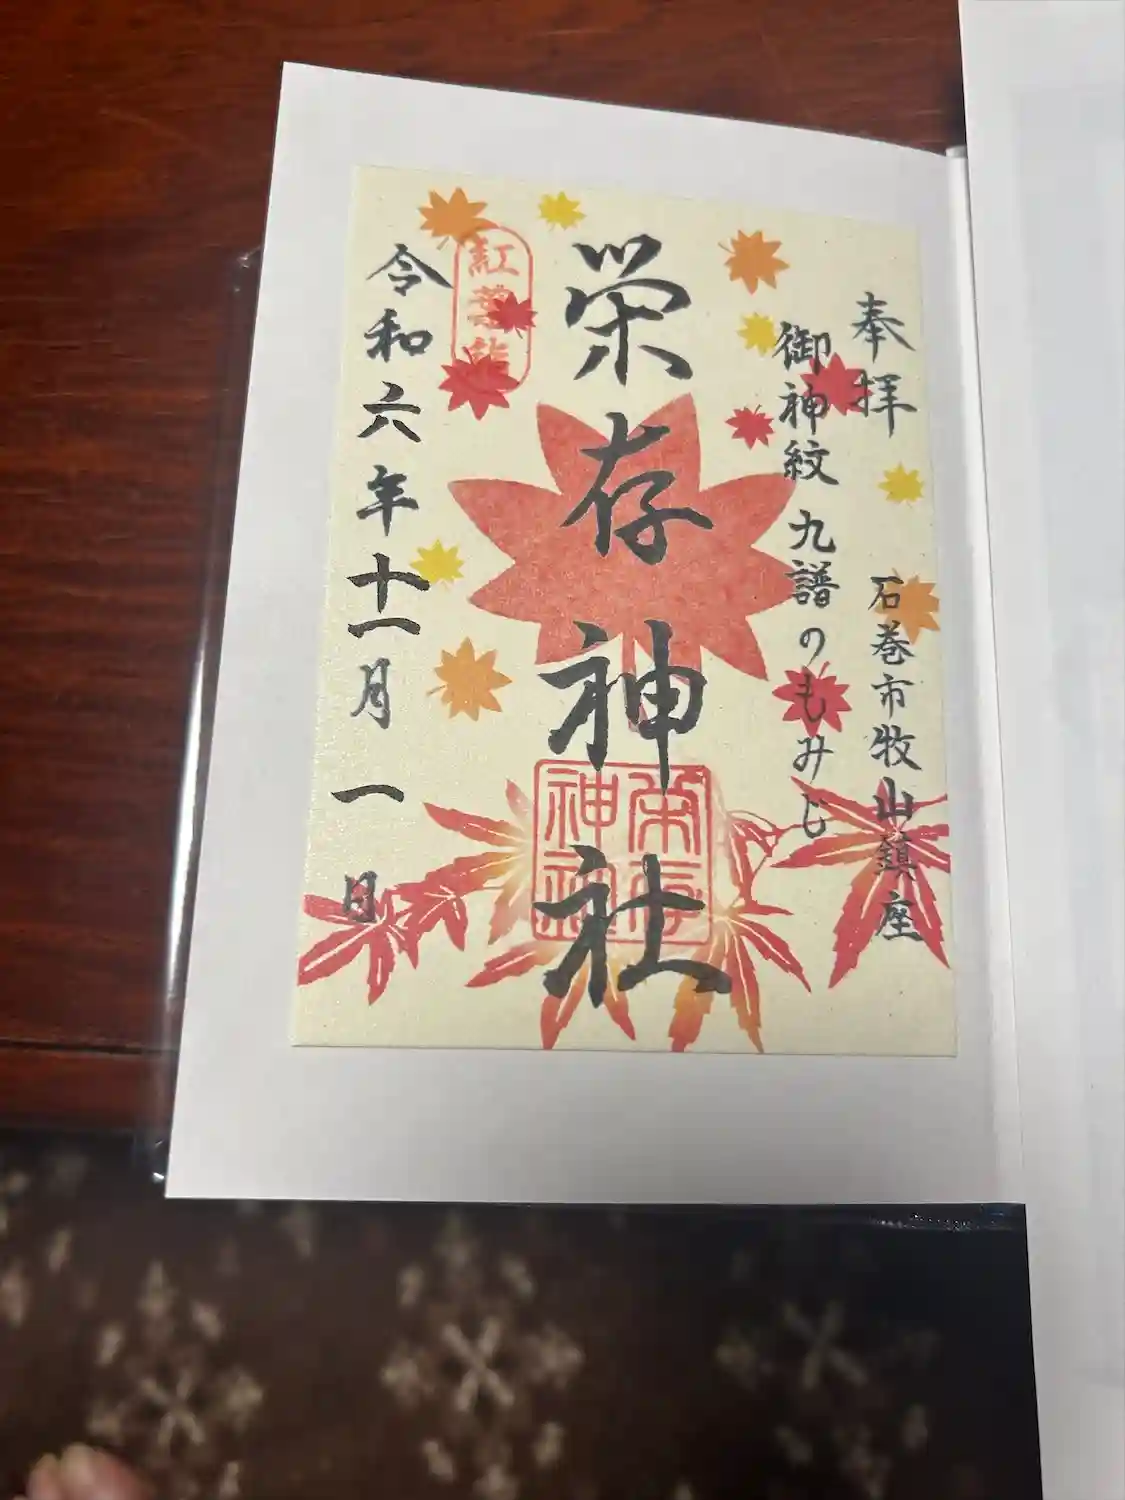 奉拝
石巻市牧山鎮座
御神紋 九譜のもみじ
栄存神社
栄存神社
紅葉詣
令和六年十一月一日